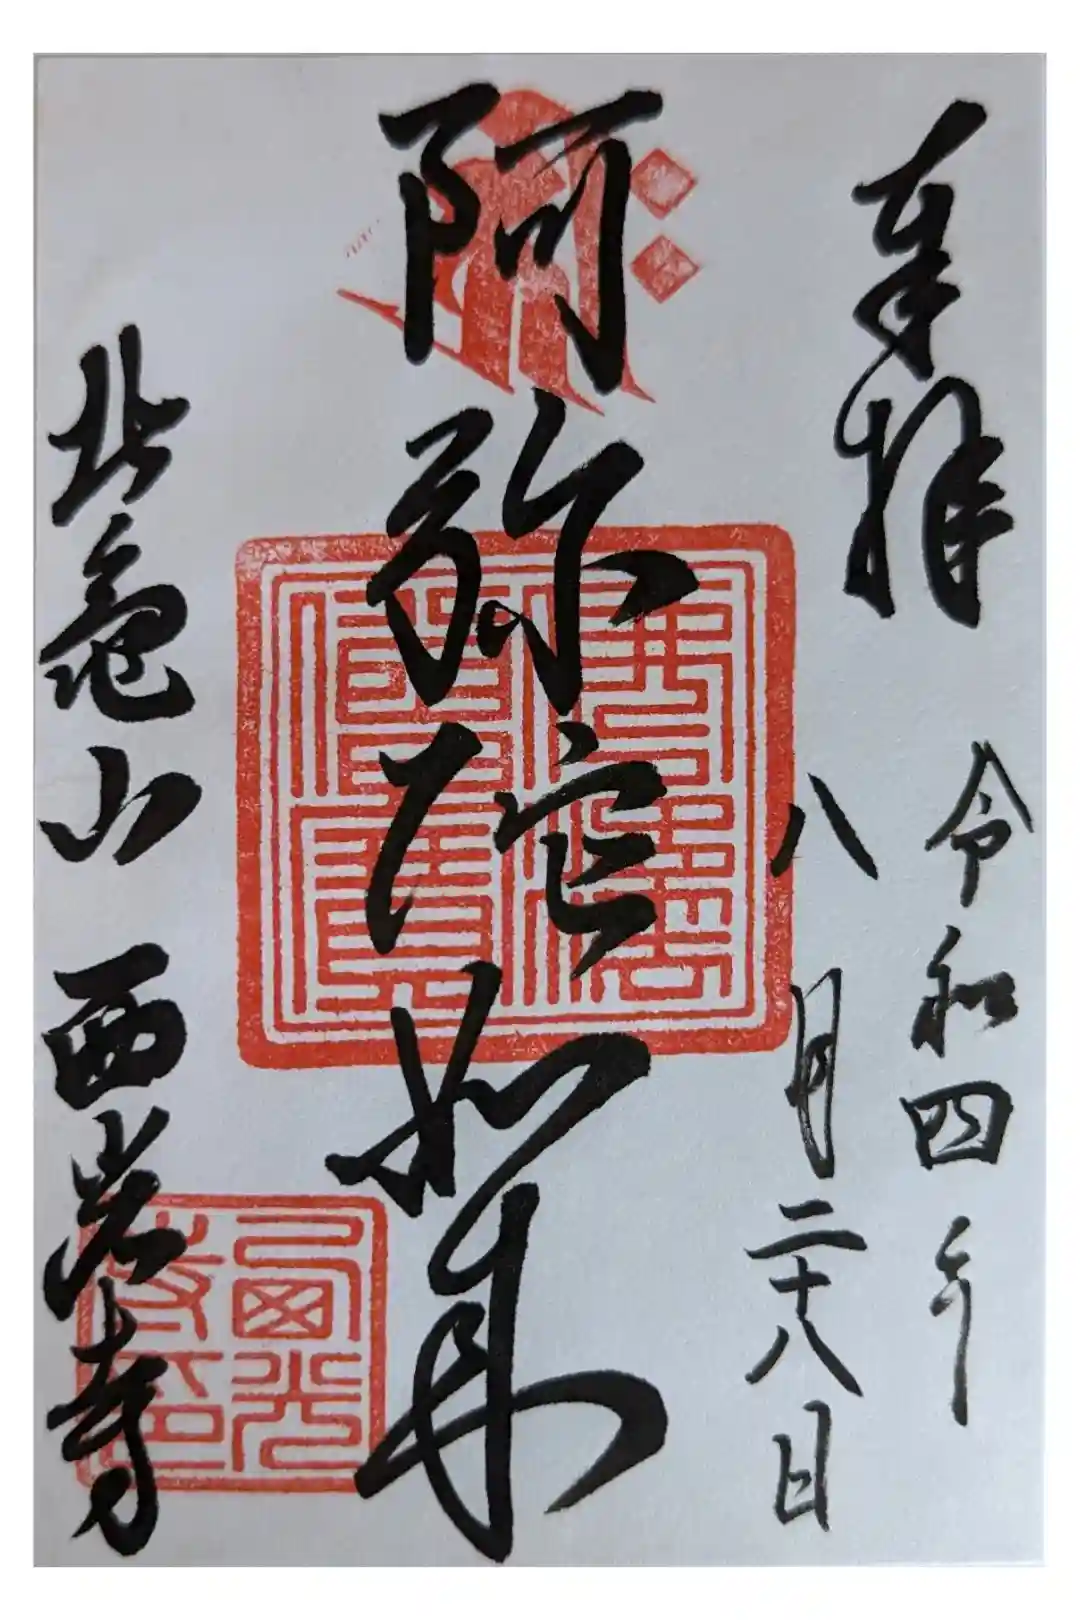 奉拝
令和四年
八月二十八日
阿弥陀如来
北亀山 西光寺
西光寺印